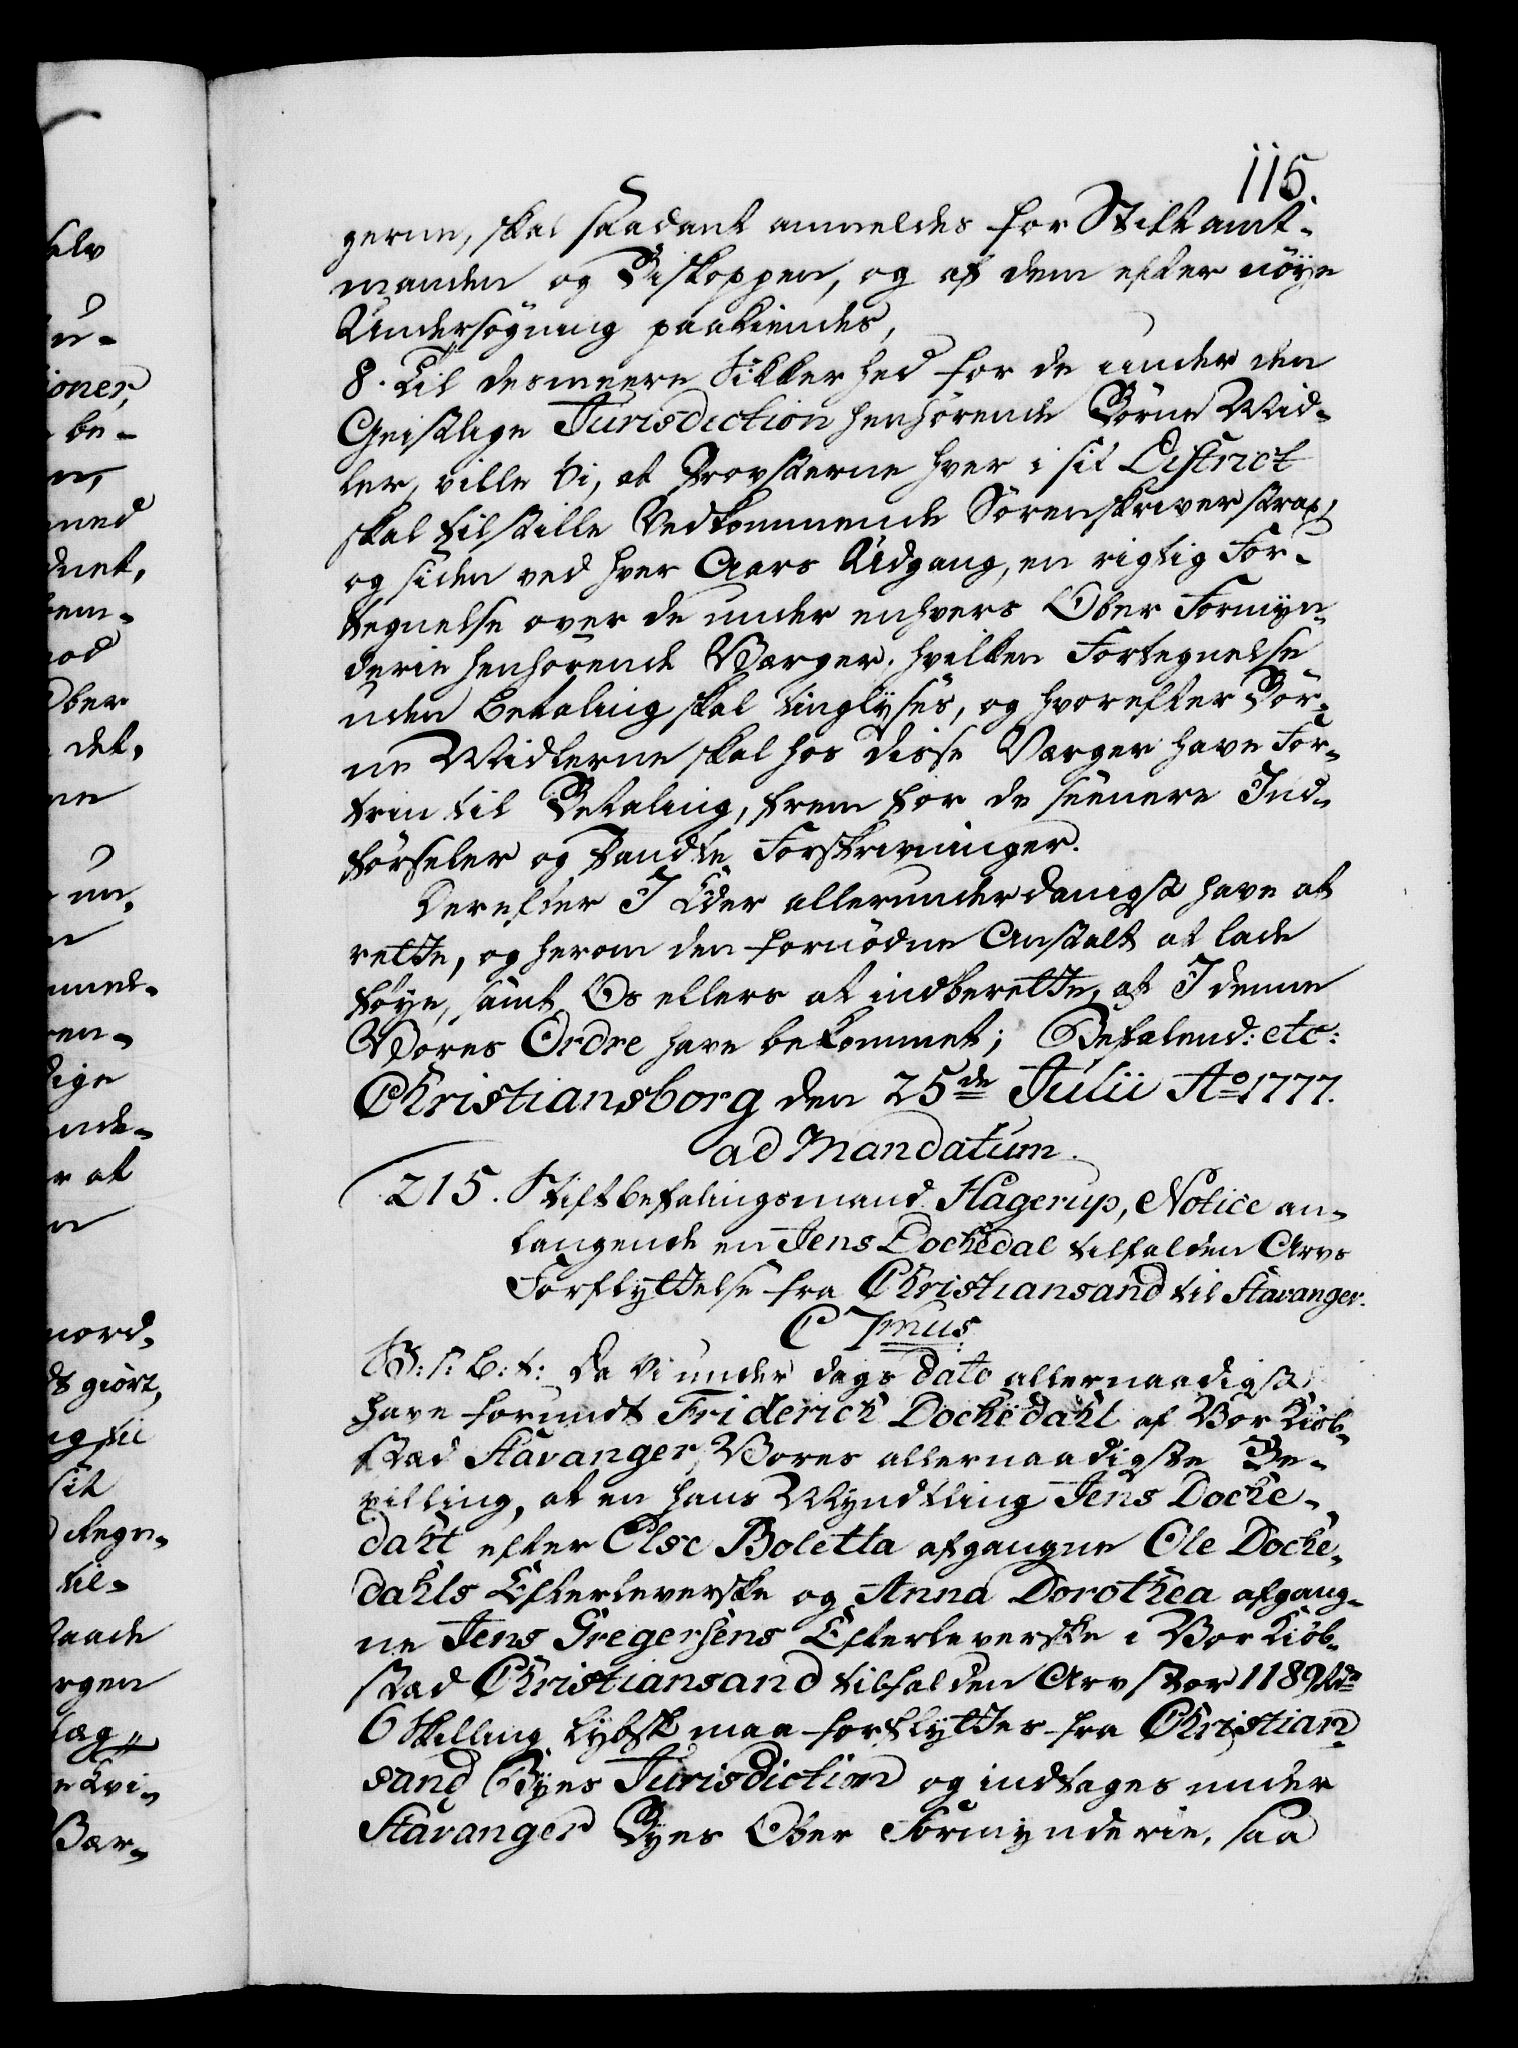 115.
gerne, skal saadant anmeldes for Stiftamt-
manden og Biskoppen, og af dem efter nöye
Undersögning paakiendes,
8. Til desmeere Sikkerhed for de under den
Geistlige Jurisdiction henhörende Börne Mid-
ler, ville Vi, at Provsterne hver i sit District
skal tilstille Vedkommende Sorenskriver strax,
og siden ved hver Aars Udgang, en rigtig For-
tegnelse over de under enhvers Ober Formyn-
derie henhorende Værger, hvilken Fortegnelse
uden Betaling skal tinglyses, og hvorefter Bör-
ne Midlerne skal hos disse Værger have For-
trin til Betaling, frem for de seenere Ind-
förseler og Pandte Forskrivninger.
Derefter I Eder allerunderdanigst have at
rette, og herom den fornödne Anstalt at lade
föye, samt Os ellers at indberette, at I denne
Vores Ordre have bekommet; Befalend: etc:
Christiansborg den 25de Julii Ao 1777.
ad Mandatum.
215. Stiftbefalingsmand Hagerup, Notice an-
langende en Jens Dochedal tilfalden Arvs
Forflyttelse fra Christiansand til Stavanger.
C 7mus.
G: s: b: t: Da Vi under dags dato allernaadigst
have forundt Friderich Dochedahl af Vor Kiöb-
stad Stavanger, Vores allernaadigste Be-
villing, at en hans Myndtling Jens Doche-
dahl efter Else Boletta afgangne Ole Doche-
dahls Efterleverske og Anna Dorothea afgang-
ne Jens Gregersens Efterleverske i Vor Kiöb-
stad Christiansand tilfalden Arv stor 1189 Rdr
6 Skilling lybsk maa forflyttes fra Christian-
sand Byes Jurisdiction og indtages under
Stavanger Byes Ober Formynderie, saa